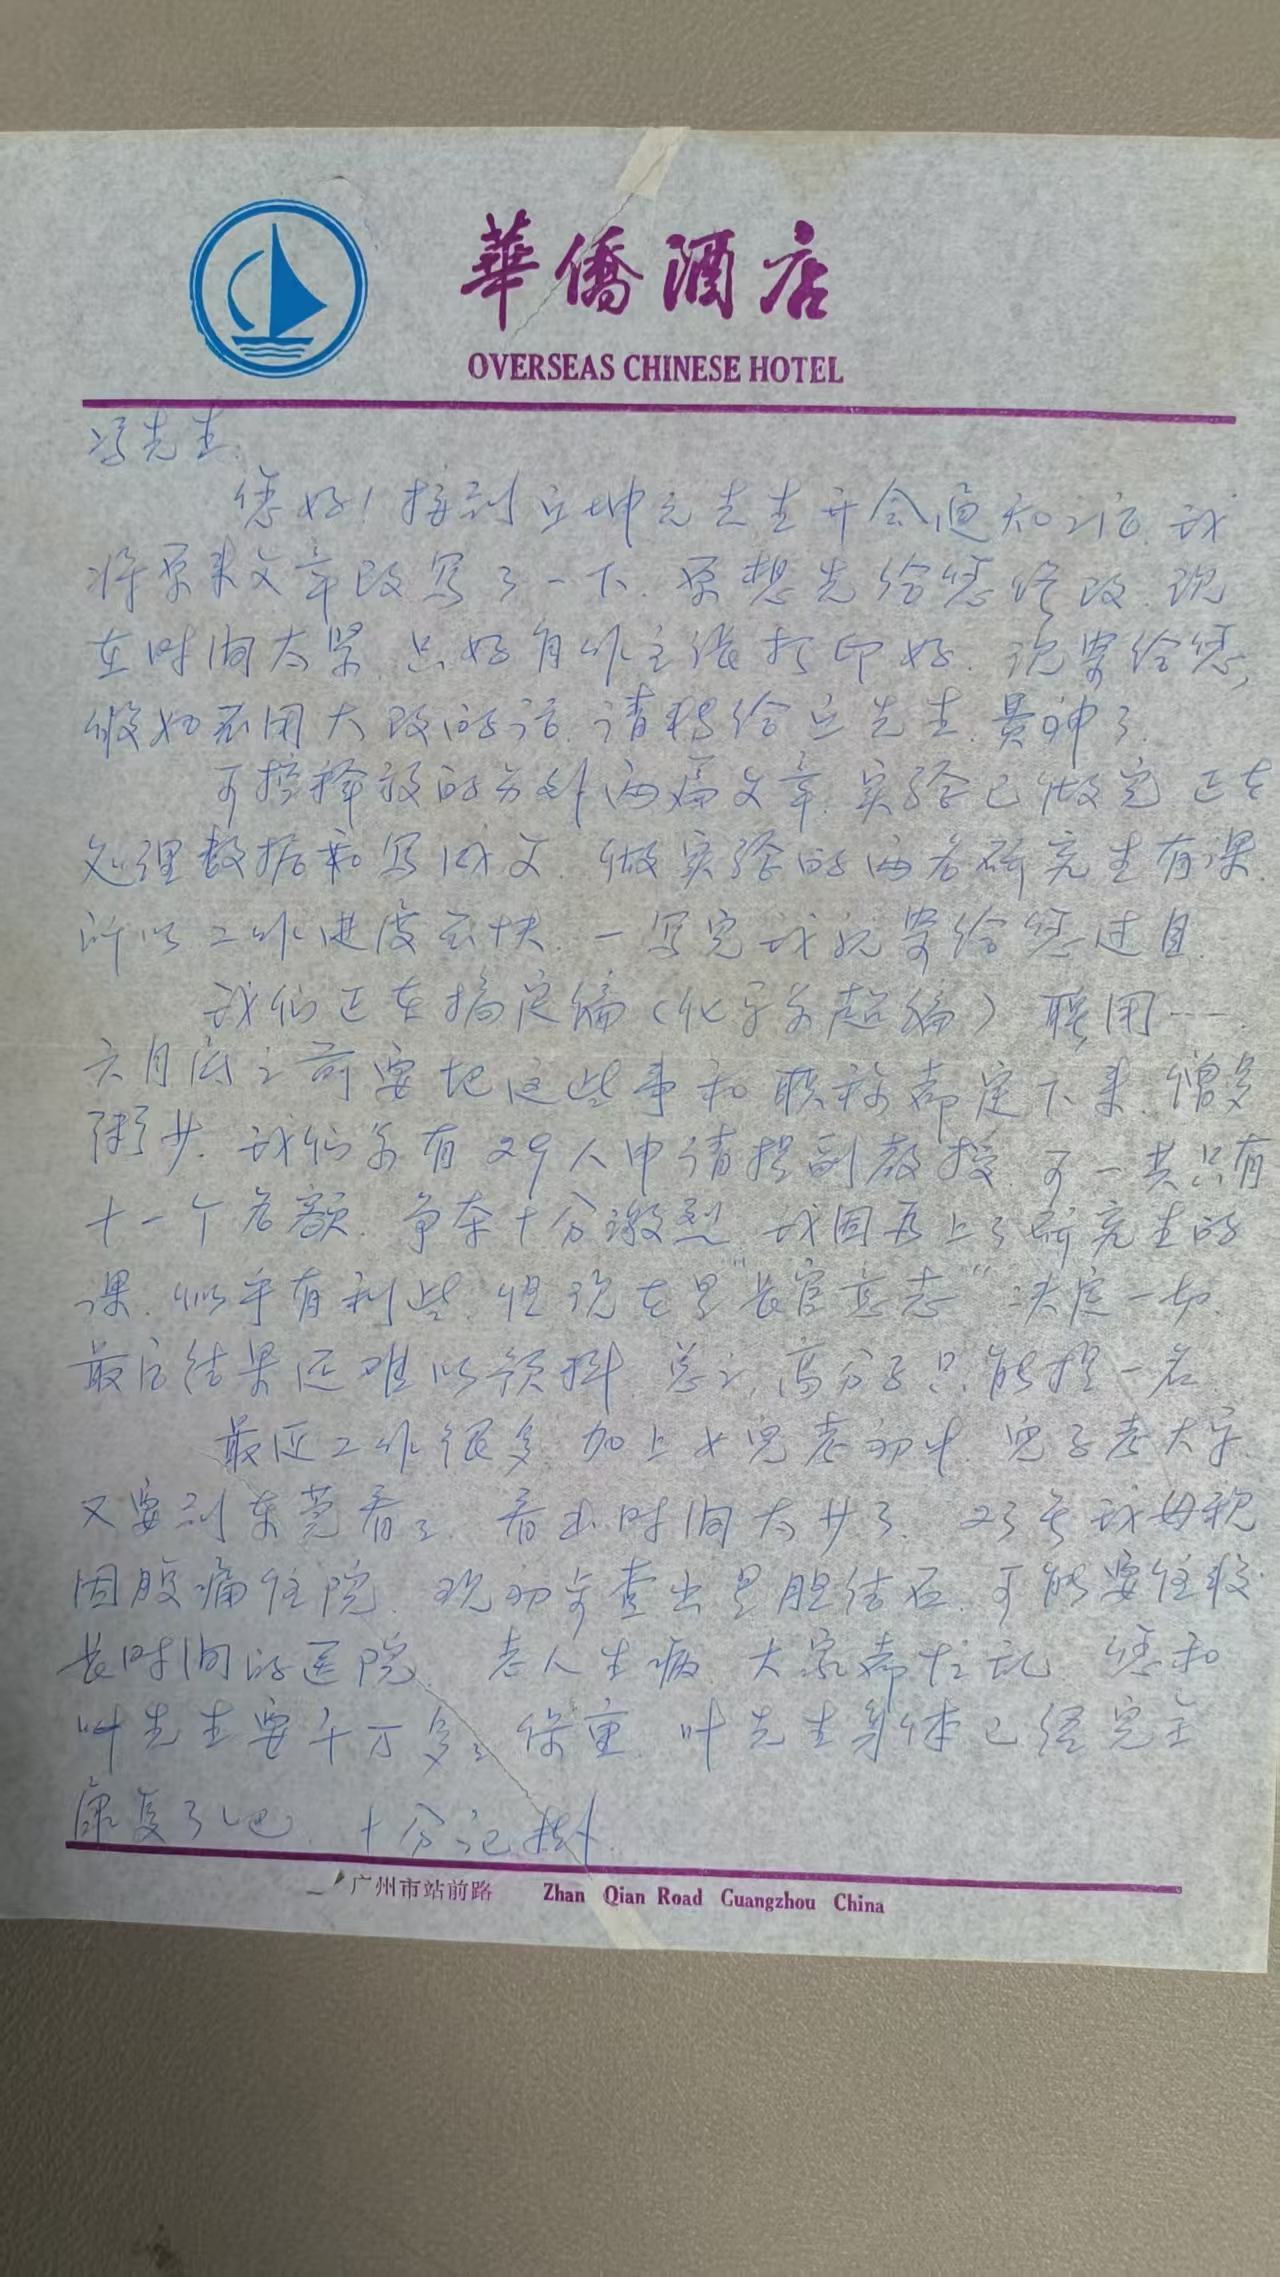 華僑酒店
OVERSEAS CHINESE HOTEL
冯先生.
您好！接到丘坤元先生开会通知后,我
将原来文章改写了一下.原想先给您修改.现
在时间太紧.只好自作主张打印好.现寄给您,
假如不用大改的话.请转给丘先生.费神了.
可控释放的另外两篇文章.实验已做完 正在
处理数据和写成文.做实验的两名研究生有课.
所以工作进度不快.一写完我就寄给您过目.
我们正在搞定编（化学系超编）聘用……
六月底之前要把这些事和职称都定下来.僧多
粥少.我们系有29人申请提副教授.可一共只有
十一个名额.争夺十分激烈.我因为上了研究生的
课.似乎有利些.但现在是"长官意志"决定一切.
最后结果还难以预料.总之,高分子只能提一名.
最近工作很多 加上女儿考初中.儿子考大学.
又要到东莞看看.看来时间太少了. 23号我母亲
因腹痛住院.现初步查出是胆结石.可能要住较
长时间的医院. 老人生病 大家都忙乱.您和
叶先生要千万多多保重.叶先生身体已经完全
康复了吧.十分记挂.
广州市站前路 Zhan Qian Road Guangzhou China